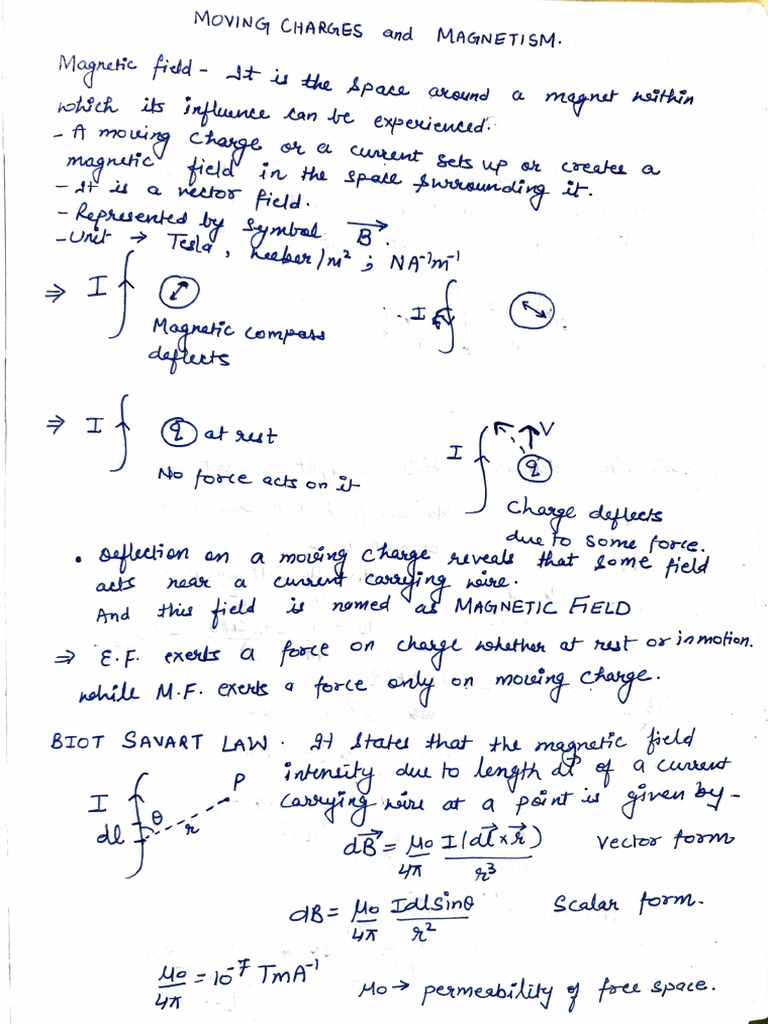 MOVING CHARGES and MAGNETISM.
Magnetic field - It is the space around a magnet within
which its influence can be experienced.
- A moving charge or a current sets up or creates a
magnetic field in the space surrounding it.
- It is a vector field.
- Represented by symbol B⃗.
- Unit → Tesla, weber/m² ; NA⁻¹m⁻¹
⇒ I
I
Magnetic compass
deflects
⇒ I q at rest
No force acts on it
I V
q
Charge deflects
due to some force.
• Deflection on a moving charge reveals that some field
acts near a current carrying wire.
And this field is named as MAGNETIC FIELD
⇒ E.F. exerts a force on charge whether at rest or in motion.
while M.F. exerts a force only on moving charge.
BIOT SAVART LAW. It states that the magnetic field
intensity due to length dl⃗ of a current
carrying wire at a point is given by -
I dl θ r P
dB⃗ = μ₀/4π I(dl⃗ × r⃗)/r³ Vector form
dB = μ₀/4π Idlsinθ/r² Scalar form.
μ₀/4π = 10⁻⁷ TmA⁻¹
μ₀ → permeability of free space.